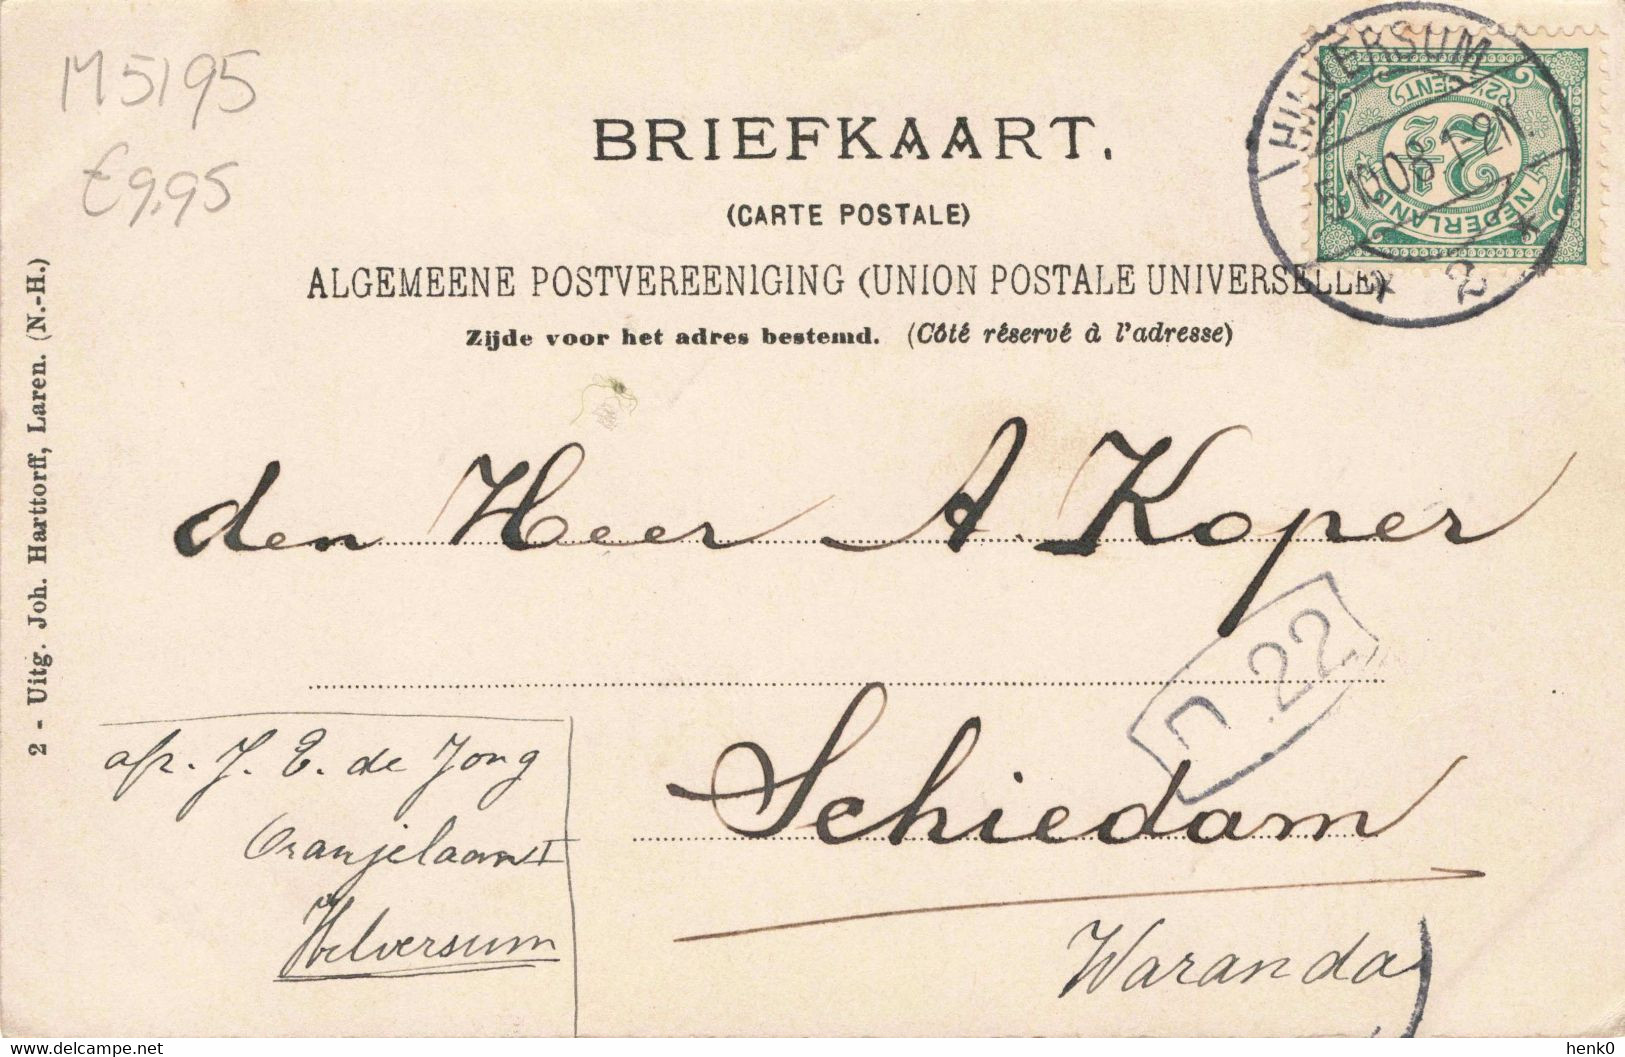 M5195
€9,95
BRIEFKAART.
(CARTE POSTALE)
ALGEMEENE POSTVEREENIGING (UNION POSTALE UNIVERSELLE)
Zijde voor het adres bestemd. (Côté réservé à l'adresse)
HILVERSUM
10 08 1-2N.
* 2 *
2½ CENT
2½
NEDERLAND
2 - Uitg. Joh. Harttorff, Laren. (N.-H.)
den Heer A. Koper
n.22
Schiedam
Waranda
afz. J. E. de Jong
Oranjelaan I
Hilversum
delcampe.net
henk0